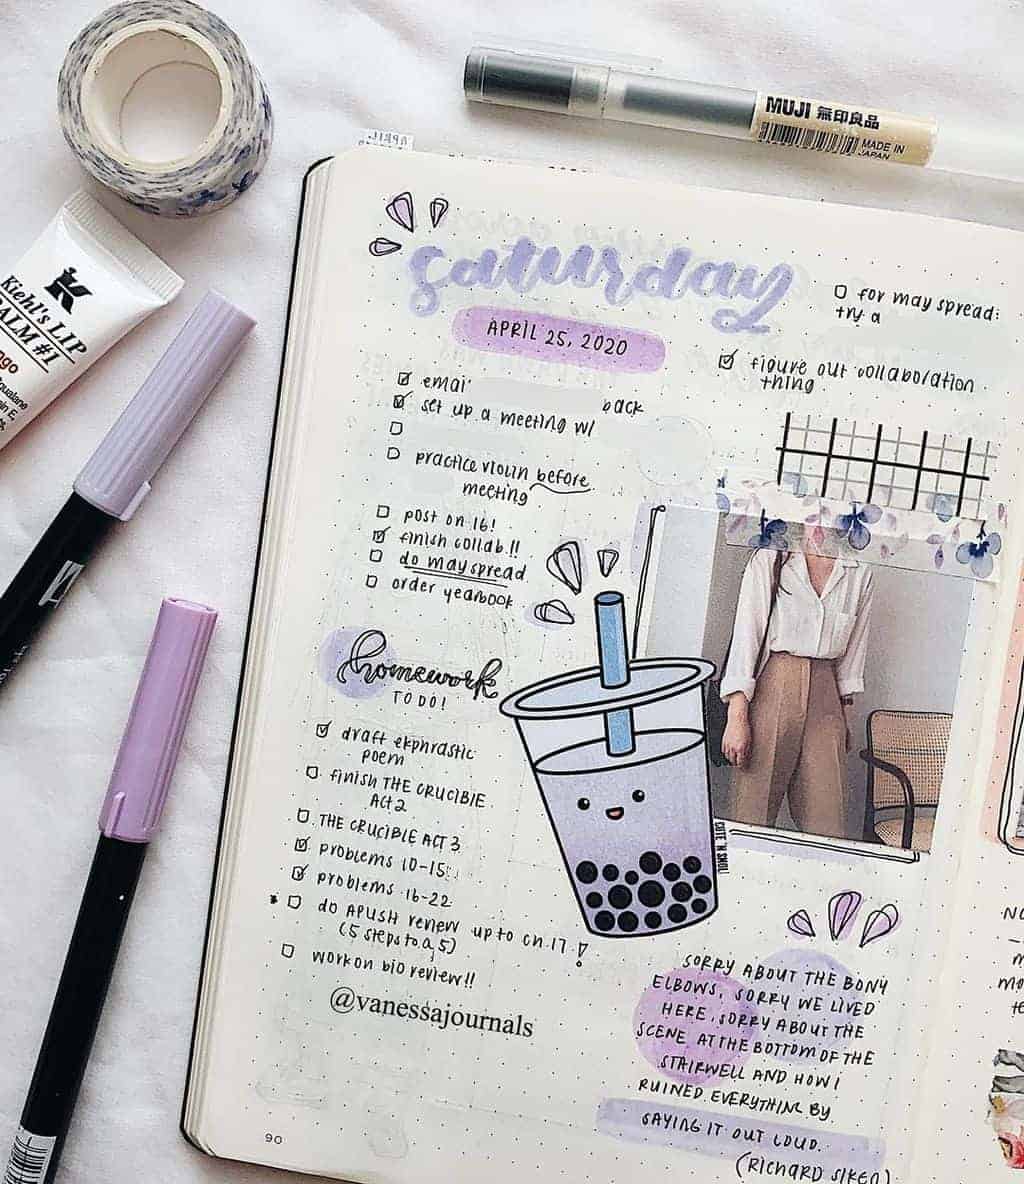 MUJI 無印良品
MADE IN
JAPAN
APRIL
Kiehl's LIP
BALM #1
saturday
APRIL 25, 2020
for may spread:
try a
figure out collaboration
thing
back
set up a meeting w/
practice violin before
meeting
post on 16!
finish collab!!
do may spread
order yearbook
homework
TO DO!
draft ekphrastic
poem
finish THE CRUCIBLE
ACT 2
THE CRUCIBLE ACT 3
problems 10-15
problems 16-22
do APUSH review up to ch. 17!
(5 steps to a 5)
work on bio review!!
@vanessajournals
CUTE 'N SMOL
SORRY ABOUT THE BONY
ELBOWS, SORRY WE LIVED
HERE, SORRY ABOUT THE
SCENE AT THE BOTTOM OF THE
STAIRWELL AND HOW I
RUINED EVERYTHING BY
SAYING IT OUT LOUD.
(RICHARD SIKEN)
90